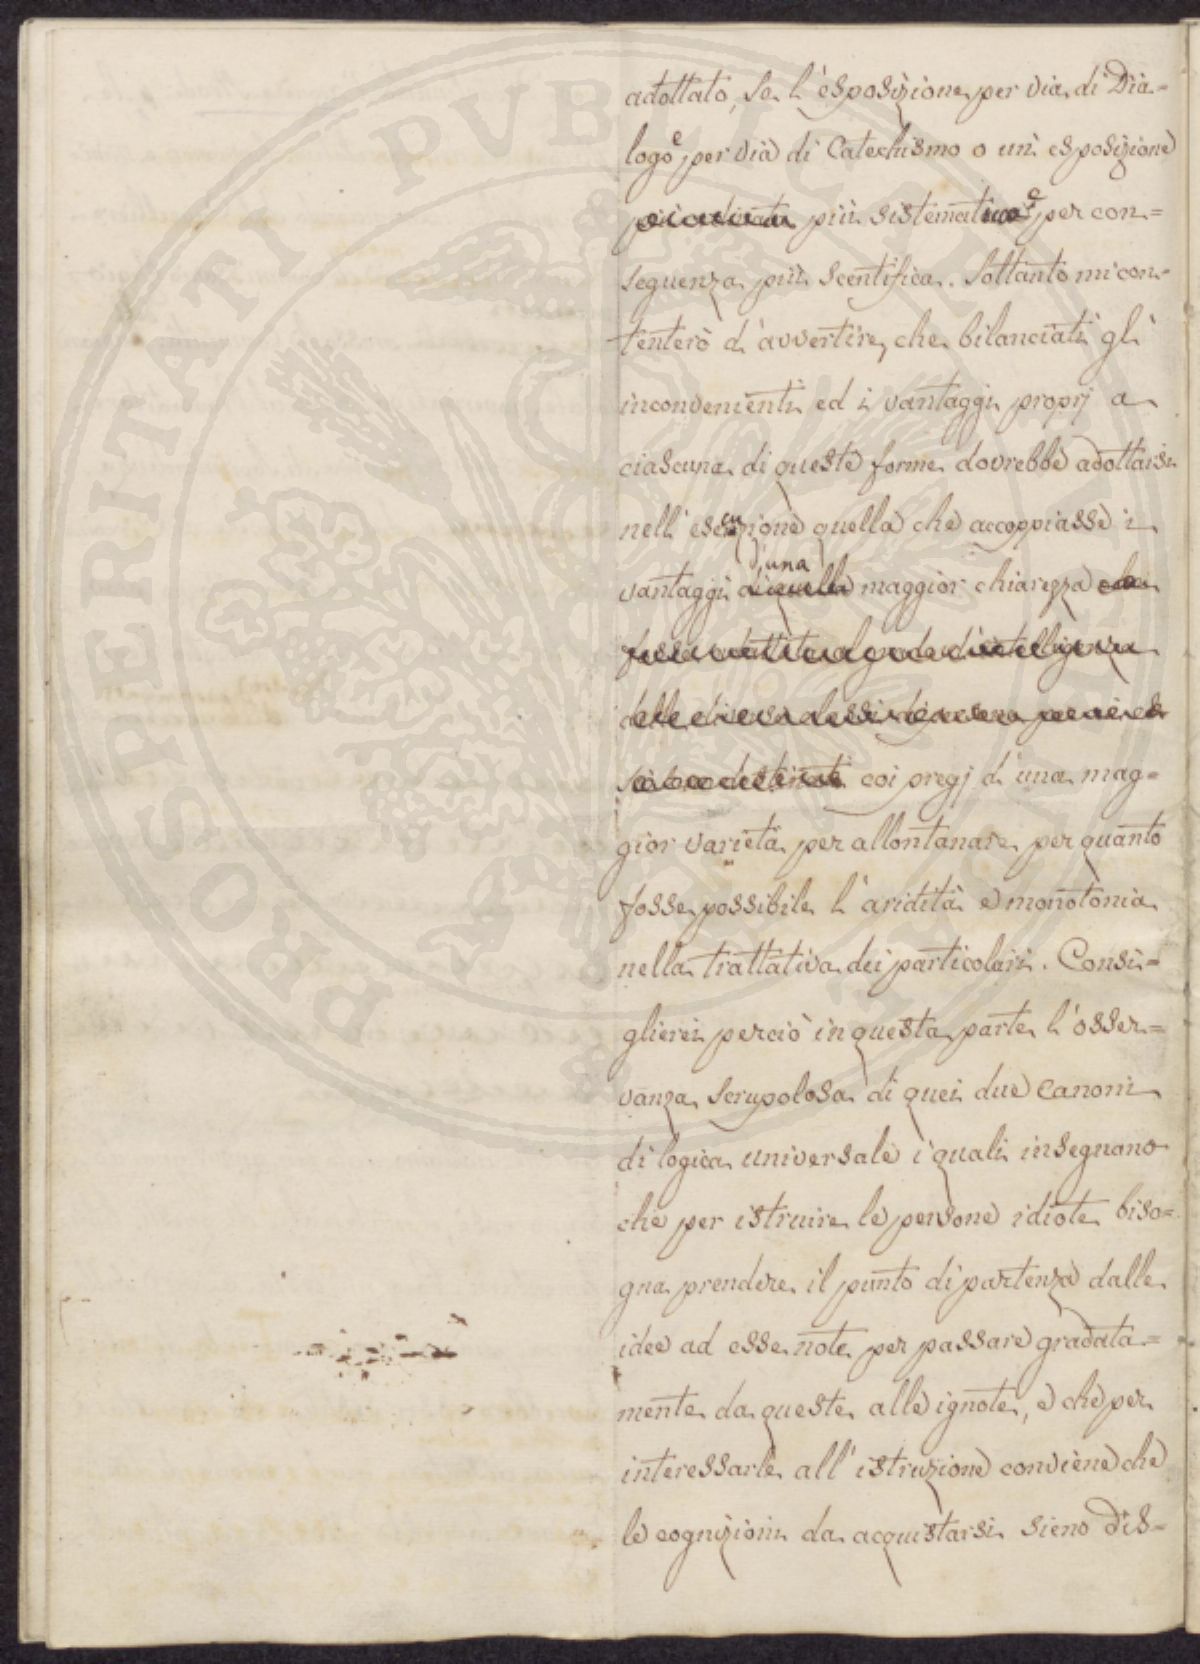 adottato, se l'esposizione per via di Dia=
logo e per via di Catechismo o un'esposizione
più sistematica e per con=
seguenza più scentifica. Soltanto mi con=
tenterò d'avvertire, che bilanciati gli
inconvenienti ed i vantaggi proprj a
ciascuna di queste forme dovrebbe adottarsi
nell'esecuzione quella che accoppiasse i
vantaggi d'una maggior chiarezza
coi pregj d'una mag=
gior varietà per allontanare per quanto
fosse possibile l'aridità e monotonia
nella trattativa dei particolari. Consi=
glierei perciò in questa parte l'osser=
vanza scrupolosa di quei due canoni
di logica universale i quali insegnano
che per istruire le persone idiote biso=
gna prendere il punto di partenza dalle
idee ad esse note per passare gradata=
mente da queste alle ignote, e che per
interessarle all'istruzione conviene che
le cognizioni da acquistarsi sieno dis=
PROSPERITATI PVBLICAE